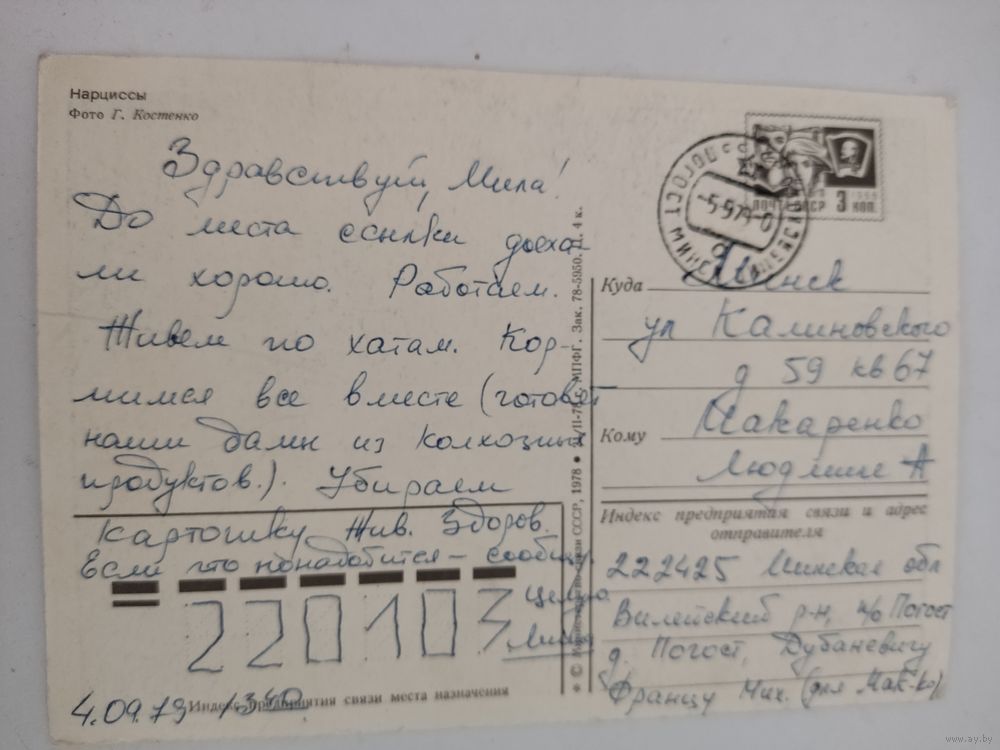 Нарциссы
Фото Г. Костенко
Здравствуй, Мила!
До места ссылки доеха-
ли хорошо. Работаем.
Живем по хатам. Кор-
мимся все вместе (готовят
наши дамы из колхозных
продуктов.). Убираем
картошку. Жив. Здоров.
Если что понадобится – сообщи.
Целую
220103
4.09.79 1340
Индекс предприятия связи места назначения
© Министерство связи СССР, 1978 • МПФГ. Зак. 78-5950. 4 к.
ПОЧТА СССР 3 коп.
-5.9.79-0
Куда Минск
ул Калиновского
д 59 кв 67
Кому Макаренко
Людмиле А
Индекс предприятия связи и адрес
отправителя
222425 Минская обл
Вилейский р-н, п/о Погост
д. Погост, Дубаневичу
Францу Мих. (для Мак-ко)
www.ay.by